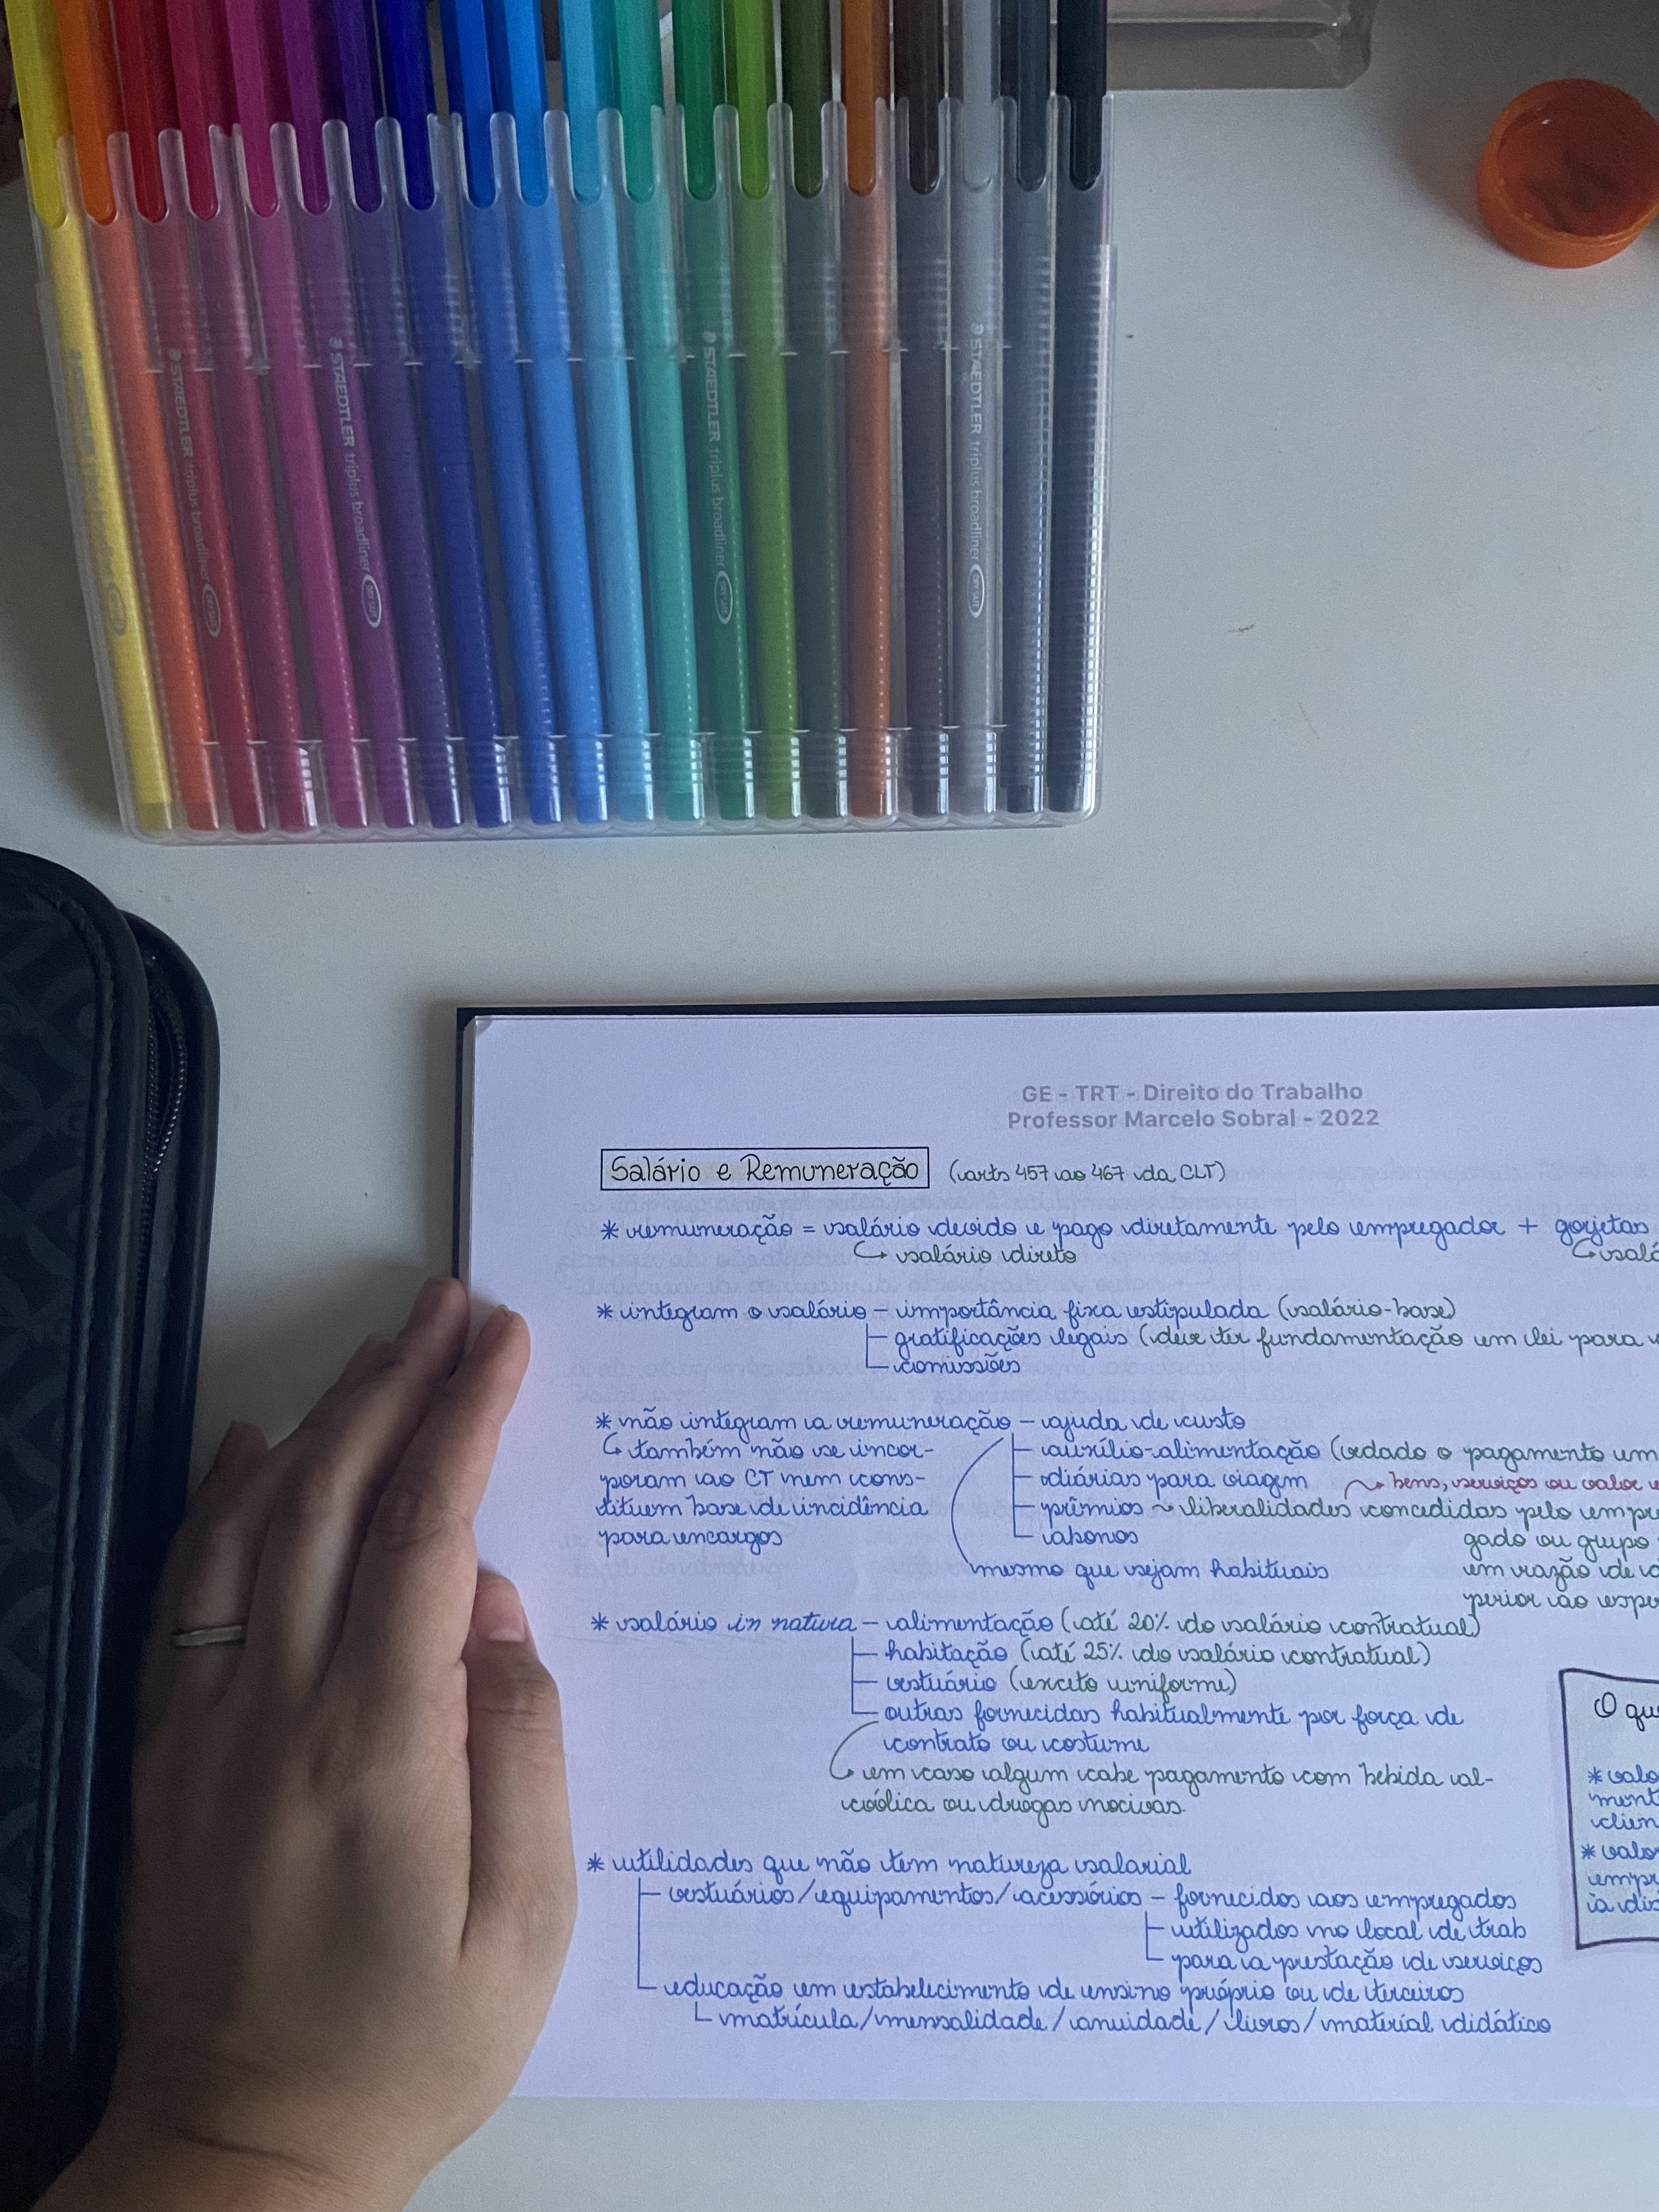 STAEDTLER triplus broadliner DRY SAFE
STAEDTLER triplus broadliner DRY SAFE
STAEDTLER triplus broadliner DRY SAFE
STAEDTLER triplus broadliner DRY SAFE
GE - TRT - Direito do Trabalho
Professor Marcelo Sobral - 2022
Salário e Remuneração (arts 457 ao 467 da CLT)
* remuneração = salário devido e pago diretamente pelo empregador + gorjetas
↳ salário direto ↳ salá
* integram o salário - importância fixa estipulada (salário-base)
gratificações legais (deve ter fundamentação em lei para
comissões
* não integram a remuneração - ajuda de custo
↳ também não se incor- auxílio-alimentação (vedado o pagamento em
poram ao CT nem cons- diárias para viagem ⤳ bens, serviços ou valor
tituem base de incidência prêmios ~ liberalidades concedidas pelo empre
para encargos abonos gado ou grupo
mesmo que sejam habituais em razão de
perior ao espe
* salário in natura - alimentação (até 20% do salário contratual)
habitação (até 25% do salário contratual)
vestuário (exceto uniforme)
outras fornecidas habitualmente por força de
contrato ou costume
↳ em caso algum cabe pagamento com bebida al-
coólica ou drogas nocivas.
O que
* valo
ment
clien
* valor
empr
à dis
* utilidades que não tem natureza salarial
vestuários/equipamentos/acessórios - fornecidos aos empregados
utilizados no local de trab
para a prestação de serviços
educação em estabelecimento de ensino próprio ou de terceiros
matrícula/mensalidade/anuidade/livros/material didático